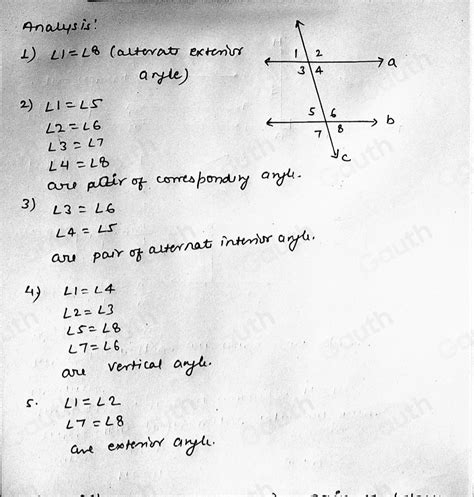 Analysis:
1) ∠1 = ∠8 (alternate exterior
angle)
2) ∠1 = ∠5
∠2 = ∠6
∠3 = ∠7
∠4 = ∠8
are pair of corresponding angle.
3) ∠3 = ∠6
∠4 = ∠5
are pair of alternat interior angle.
4) ∠1 = ∠4
∠2 = ∠3
∠5 = ∠8
∠7 = ∠6
are vertical angle.
5. ∠1 = ∠2
∠7 = ∠8
are exterior angle.
1 2
a
3 4
5 6
b
7 8
c
Gauth